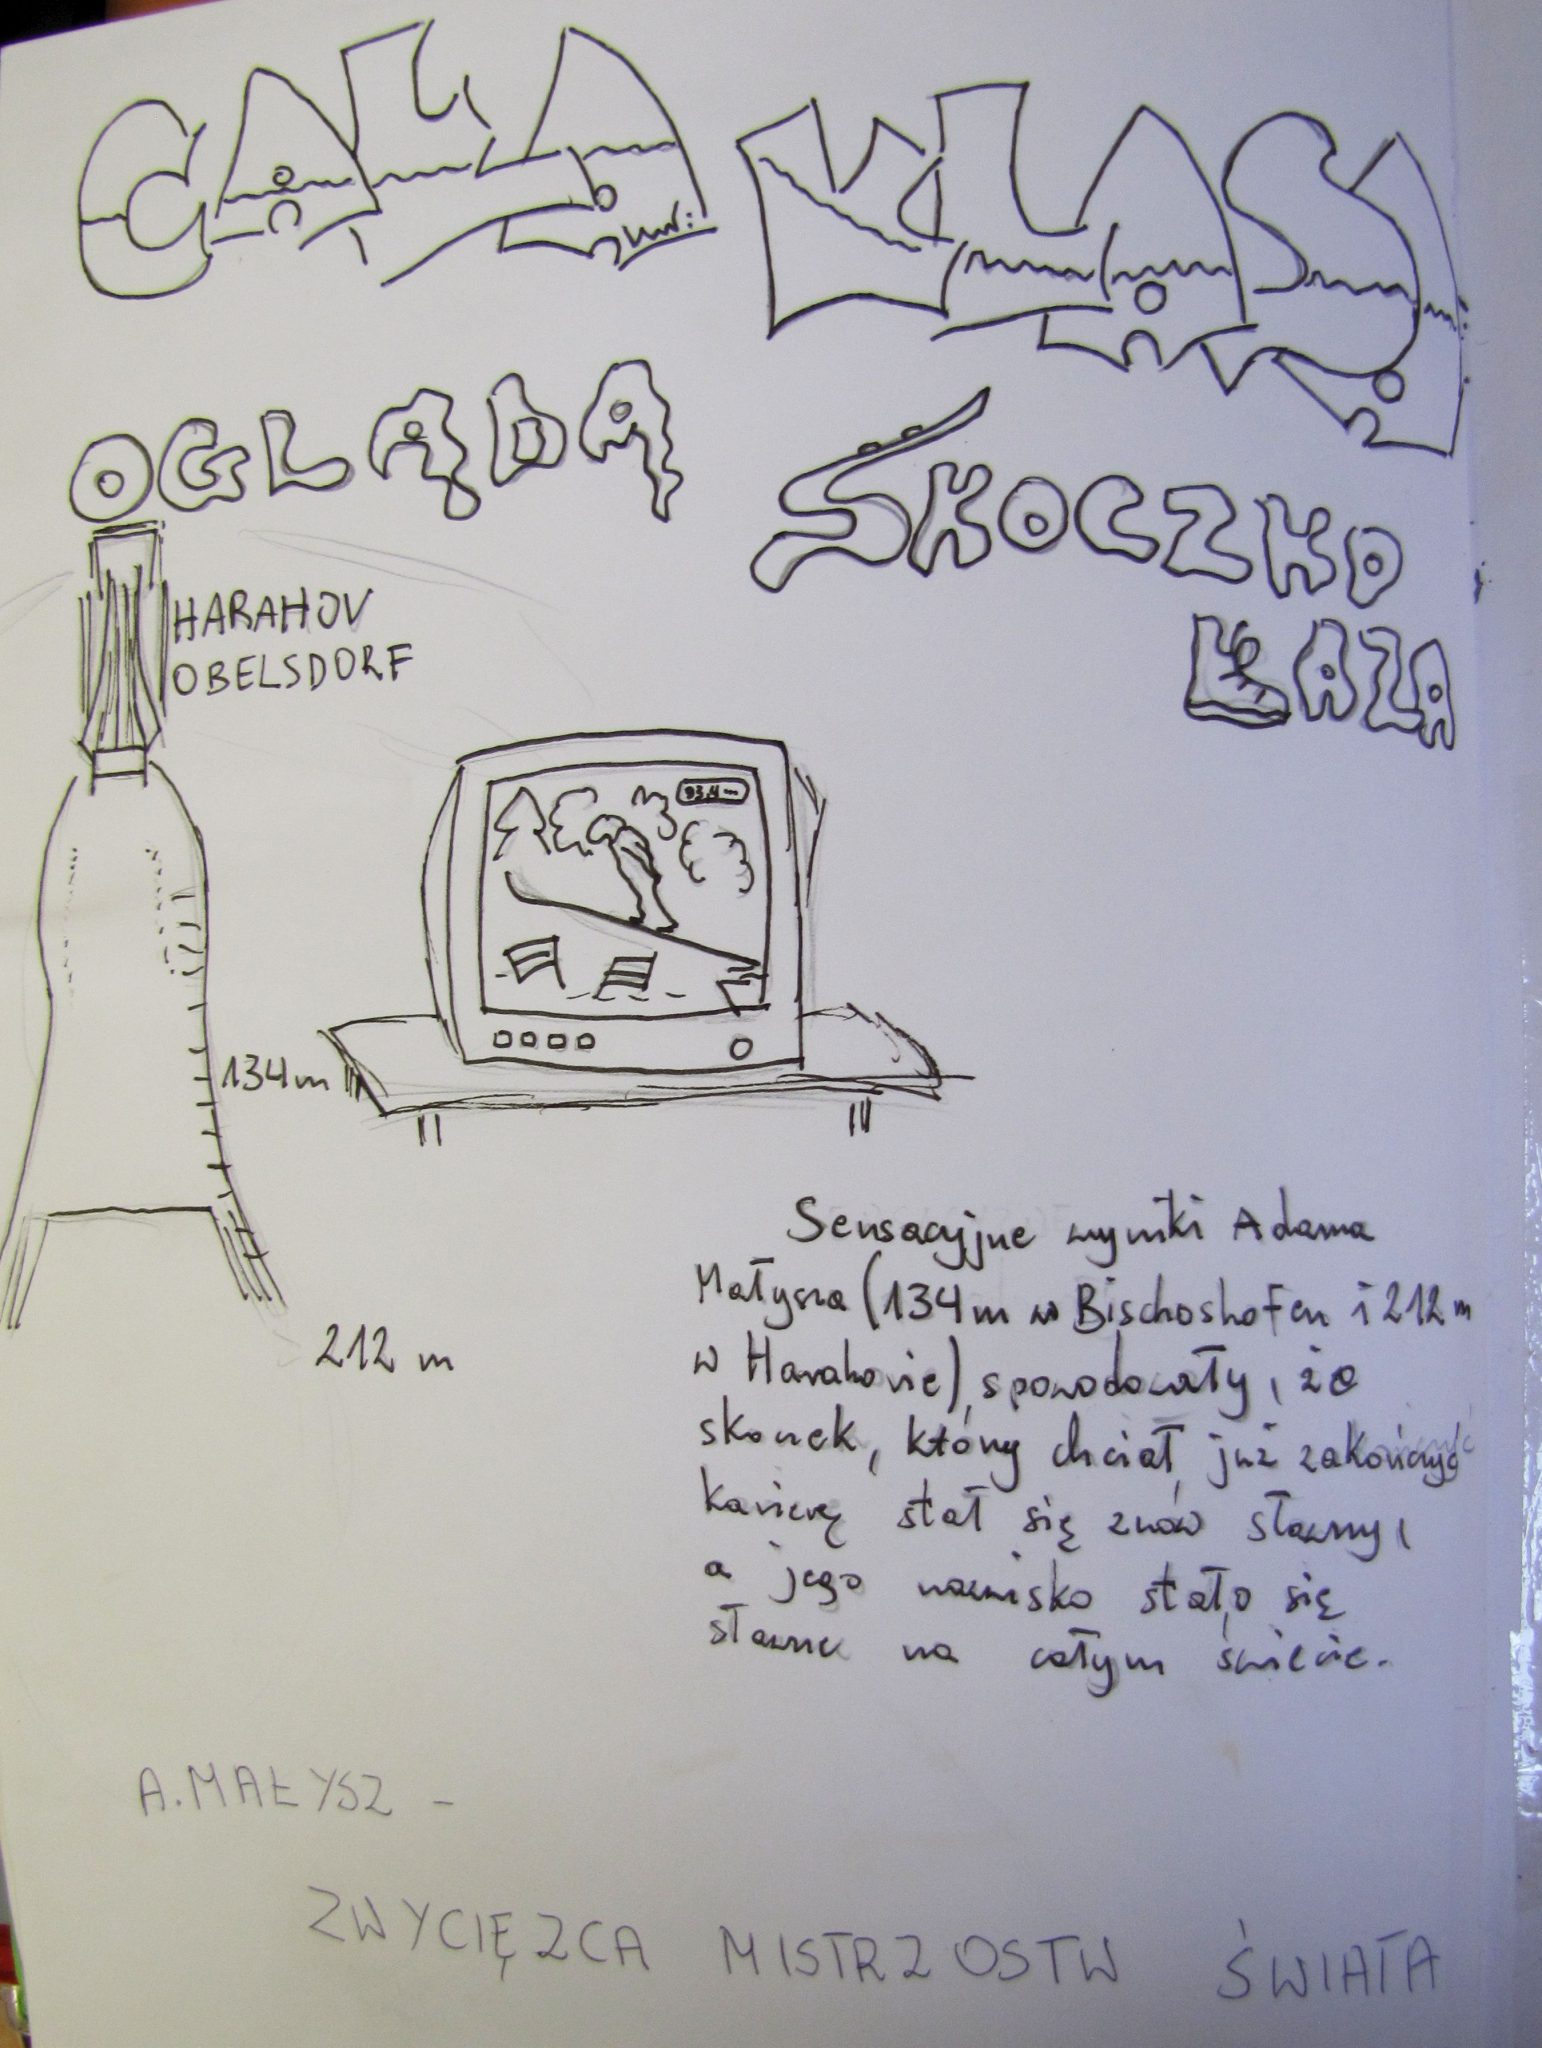 CAŁA KLASA
OGLĄDA SKOCZKO
ŁAZA
HARAHOV
OBELSDORF
93,4 m
134m
Sensacyjne wyniki Adama
Małysza (134m w Bischoshofen i 212m
w Harahovie), spowodowały, że
skoczek, który chciał już zakończyć
karierę stał się znów sławny,
a jego nazwisko stało się
sławne na całym świecie.
212 m
A. MAŁYSZ -
ZWYCIĘZCA MISTRZOSTW ŚWIATA